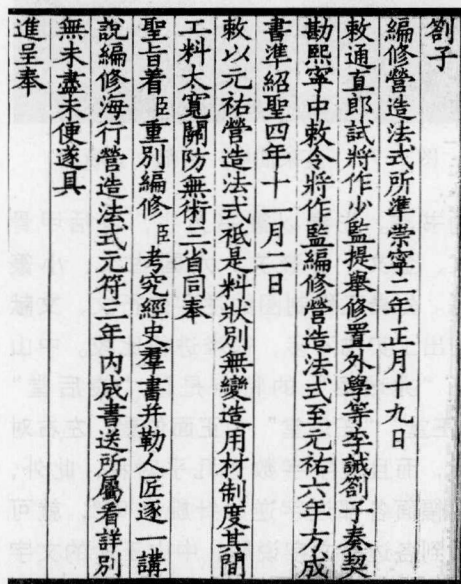 劄子
編修營造法式所準崇寧二年正月十九日
敕通直郎試將作少監提舉修置外學等李誡劄子奏契
勘熙寧中敕令將作監編修營造法式至元祐六年方成
書準紹聖四年十一月二日
敕以元祐營造法式祗是料狀別無變造用材制度其間
工料太寬關防無術三省同奉
聖旨着臣重別編修臣考究經史羣書并勒人匠逐一講
說編修海行營造法式元符三年內成書送所屬看詳別
無未盡未便遂具
進呈奉